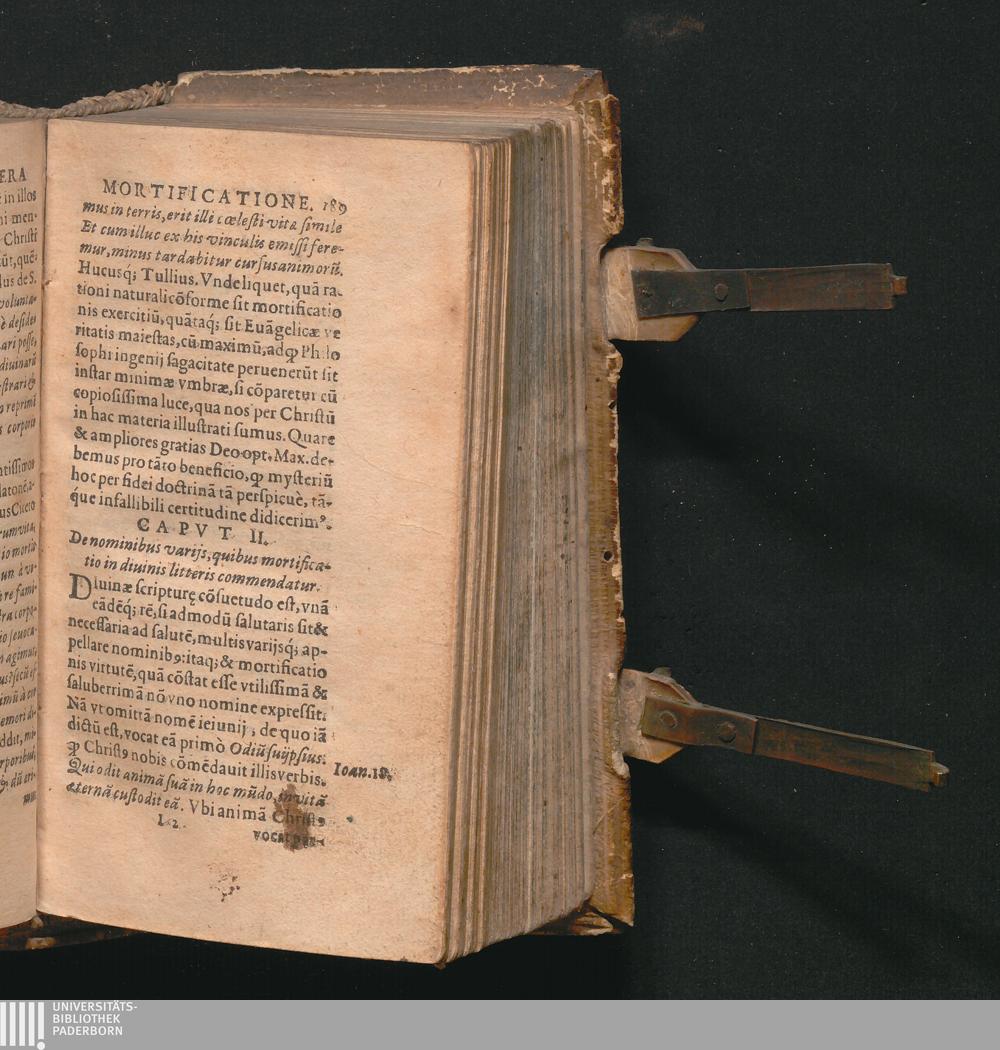 ERA
t in illos
ni men-
Christi
lus de S.
volunta-
è desides
ari posse,
diuinarũ
strari &
reprimã
corporis
ntissimos
latonē a-
us Cicero
rum vita,
io mortis
MORTIFICATIONE. 189
mus in terris, erit illi cœlesti vita simile
Et cum illuc ex his vinculis emissi fere-
mur, minus tardabitur cursus animorũ.
Hucusq; Tullius. Vnde liquet, quã ra-
tioni naturali cõforme sit mortificatio
nis exercitiũ, quãtaq; sit Euãgelicæ ve
ritatis maiestas, cũ maximũ, ad qꝫ Philo
sophi ingenij sagacitate peruenerũt sit
instar minimæ vmbræ, si cõparetur cũ
copiosissima luce, qua nos per Christũ
in hac materia illustrati sumus. Quare
& ampliores gratias Deo opt. Max. de-
bemus pro tãto beneficio, qꝫ mysteriũ
hoc per fidei doctrinã tã perspicuè, tã-
q́ue infallibili certitudine didicerimꝰ.
CAPVT II.
De nominibus varijs, quibus mortifica-
tio in diuinis litteris commendatur.
Diuinæ scripturę cõsuetudo est, vnã
eãdẽq́; rẽ, si admodũ salutaris sit &
necessaria ad salutẽ, multis varijsq́; ap-
pellare nominibꝰ: itaq; & mortificatio
nis virtutẽ, quã cõstat esse vtilissimã &
saluberrimã nõ vno nomine expressit.
Nã vt omittã nomẽ ieiunij, de quo iã
dictũ est, vocat eã primò Odiũ suijpsius.
qꝫ Christꝰ nobis cõmẽdauit illis verbis.
Ioan. 18.
Qui odit animã suã in hoc mũdo, in vitã
eternã custodit eã. Vbi animã Christꝰ
L 2
vocat
UNIVERSITÄTS-
BIBLIOTHEK
PADERBORN